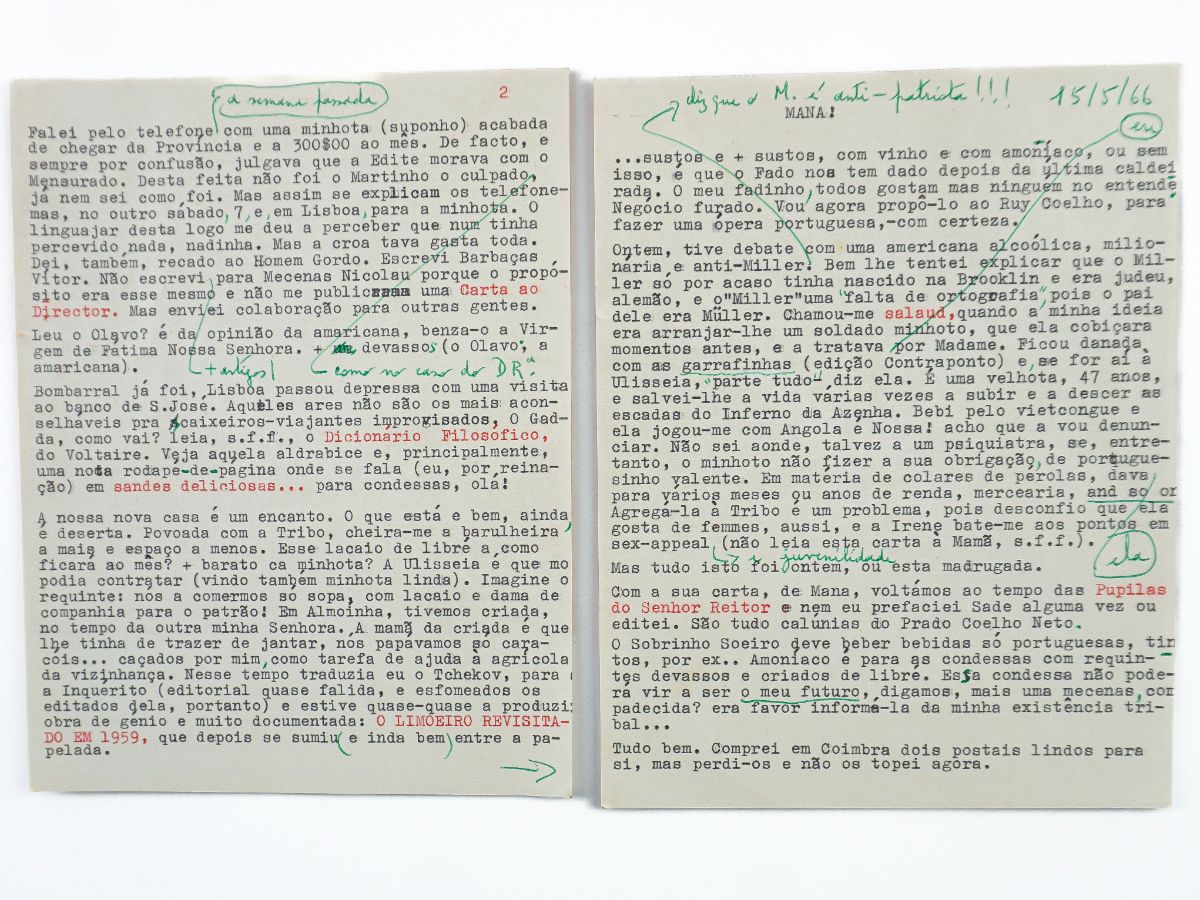 a semana passada
2
Falei pelo telefone com uma minhota (suponho) acabada
de chegar da Província e a 300$00 ao mês. De facto, e
sempre por confusão, julgava que a Edite morava com o
Mensurado. Desta feita não foi o Martinho o culpado,
já nem sei como foi. Mas assim se explicam os telefone-
mas, no outro sábado, 7, e, em Lisboa, para a minhota. O
linguajar desta logo me deu a perceber que num tinha
percevido nada, nadinha. Mas a croa tava gasta toda.
Dei, também, recado ao Homem Gordo. Escrevi Barbaças
Vítor. Não escrevi para Mecenas Nicolau porque o propó-
sito era esse mesmo e não me public uma Carta ao
Director. Mas enviei colaboração para outras gentes.
Leu o Olavo? é da opinião da amaricana, benza-o a Vir-
gem de Fátima Nossa Senhora. + devassos (o Olavo, a
amaricana).
+ antigos
como no caso do DR.ª
Bombarral já foi, Lisboa passou depressa com uma visita
ao banco de S.José. Aqueles ares não são os mais acon-
selháveis pra caixeiros-viajantes improvisados, O Gad-
da, como vai? leia, s.f.f., o Dicionário Filosófico,
do Voltaire. Veja aquela aldrabice e, principalmente,
uma nota rodape-de-pagina onde se fala (eu, por reina-
ção) em sandes deliciosas... para condessas, olá!
A nossa nova casa é um encanto. O que está e bem, ainda
é deserta. Povoada com a Tribo, cheira-me a barulheira,
a mais e espaço a menos. Esse lacaio de libré a como
ficará ao mês? + barato ca minhota? A Ulisseia é que mo
podia contratar (vindo também minhota linda). Imagine o
requinte: nós a comermos só sopa, com lacaio e dama de
companhia para o patrão! Em Almoinha, tivemos criada,
no tempo da outra minha Senhora. A mamã da criada é que
lhe tinha de trazer de jantar, nós papávamos só cara-
cóis... caçados por mim, como tarefa de ajuda à agrícola
da vizinhança. Nesse tempo traduzia eu o Tchekov, para
a Inquérito (editorial quase falida, e esfomeados os
editados dela, portanto) e estive quase-quase a produzi
obra de génio e muito documentada: O LIMOEIRO REVISITA-
DO EM 1959, que depois se sumiu (e inda bem) entre a pa-
pelada.
diz que o M. é anti-patriota!!!
15/5/66
MANA!
eu
...sustos e + sustos, com vinho e com amoníaco, ou sem
isso, é que o Fado nos tem dado depois da última caldei
rada. O meu fadinho, todos gostam mas ninguém no entende
Negócio furado. Vou agora propô-lo ao Ruy Coelho, para
fazer uma ópera portuguesa,-com certeza.
Ontem, tive debate com uma americana alcoólica, milio-
nária e anti-Miller! Bem lhe tentei explicar que o Mil-
ler só por acaso tinha nascido na Brooklin e era judeu,
alemão, e o "Miller" uma "falta de ortografia", pois o pai
dele era Müller. Chamou-me salaud, quando a minha ideia
era arranjar-lhe um soldado minhoto, que ela cobiçara
momentos antes, e a tratava por Madame. Ficou danada
com as garrafinhas (edição Contraponto) e, se for aí à
Ulisseia, "parte tudo", diz ela. É uma velhota, 47 anos,
e salvei-lhe a vida várias vezes a subir e a descer as
escadas do Inferno da Azenha. Bebi pelo vietcongue e
ela jogou-me com Angola é Nossa! acho que a vou denun-
ciar. Não sei aonde, talvez a um psiquiatra, se, entre-
tanto, o minhoto não fizer a sua obrigação, de portugue-
sinho valente. Em matéria de colares de pérolas, dava
para vários meses ou anos de renda, mercearia, and so on
Agregá-la à Tribo é um problema, pois desconfio que ela
gosta de femmes, aussi, e a Irene bate-me aos pontos em
sex-appeal (não leia esta carta à Mamã, s.f.f.).
e juvenilidade
ela
Mas tudo isto foi ontem, ou esta madrugada.
Com a sua carta, de Mana, voltámos ao tempo das Pupilas
do Senhor Reitor e nem eu prefaciei Sade alguma vez ou
editei. São tudo calúnias do Prado Coelho Neto.
O Sobrinho Soeiro deve beber bebidas só portuguesas, tin
tos, por ex.. Amoníaco é para as condessas com requin-
tes devassos e criados de libré. Essa condessa não pode-
rá vir a ser o meu futuro, digamos, mais uma mecenas, com
padecida? era favor informá-la da minha existência tri-
bal...
Tudo bem. Comprei em Coimbra dois postais lindos para
si, mas perdi-os e não os topei agora.